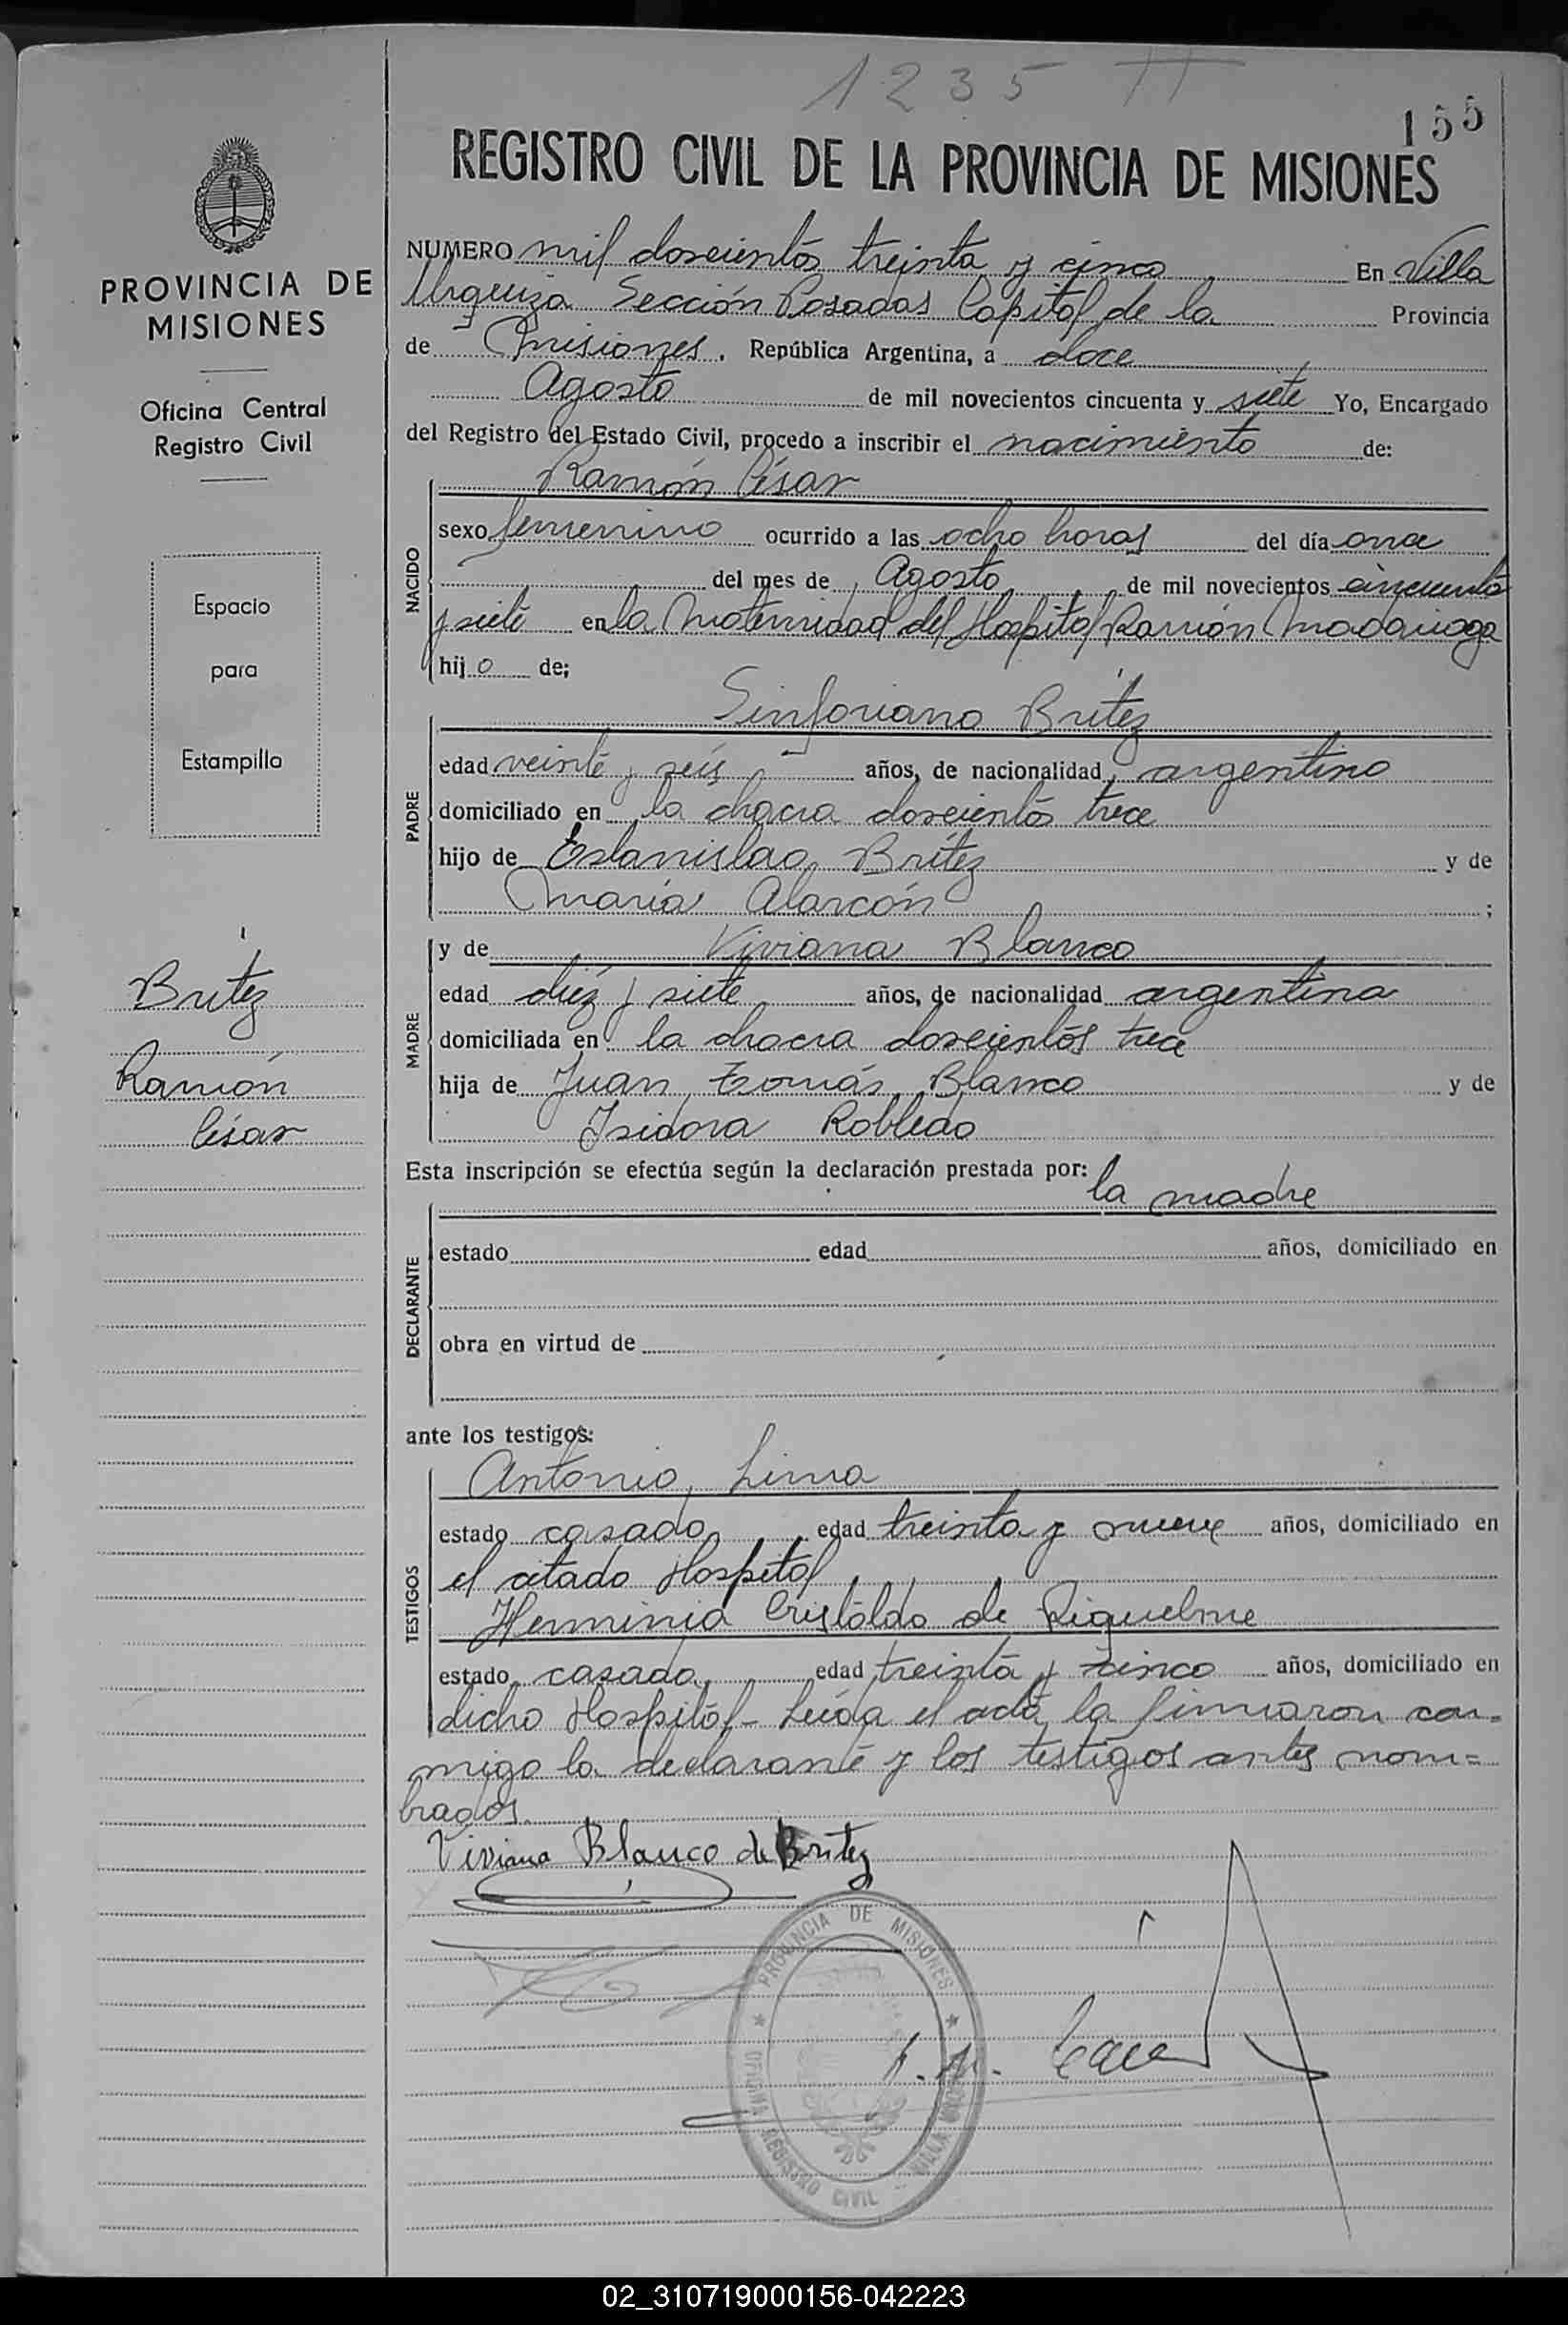 1235 TT
155
REGISTRO CIVIL DE LA PROVINCIA DE MISIONES
PROVINCIA DE
MISIONES
Oficina Central
Registro Civil
Espacio
para
Estampilla
Britez
Ramón
César
NUMERO mil doscientos treinta y cinco En Villa
Urquiza Sección Posadas Capital de la Provincia
de Misiones. República Argentina, a doce
Agosto de mil novecientos cincuenta y siete Yo, Encargado
del Registro del Estado Civil, procedo a inscribir el nacimiento de:
NACIDO
Ramón César
sexo femenino ocurrido a las ocho horas del día once
del mes de Agosto de mil novecientos cincuenta
y siete en la Maternidad del Hospital Ramón Madariaga
hijo de;
PADRE
Sinforiano Britez
edad veinte y seis años, de nacionalidad argentino
domiciliado en la chacra doscientos trece
hijo de Estanislao Britez y de
María Alarcón ;
MADRE
y de Viviana Blanco
edad diez y siete años, de nacionalidad argentina
domiciliada en la chacra doscientos trece
hija de Juan Tomás Blanco y de
Isidora Robledo
Esta inscripción se efectúa según la declaración prestada por:
la madre
DECLARANTE
estado edad años, domiciliado en
obra en virtud de
ante los testigos:
TESTIGOS
Antonio Lima
estado casado edad treinta y nueve años, domiciliado en
el citado Hospital
Herminia Cristaldo de Riquelme
estado casada edad treinta y cinco años, domiciliado en
dicho Hospital- Leída el acta la firmaron con-
migo la declarante y los testigos antes nom=
brados.
Viviana Blanco de Britez
PROVINCIA DE MISIONES
OFICINA REGISTRO CIVIL
02_310719000156-042223